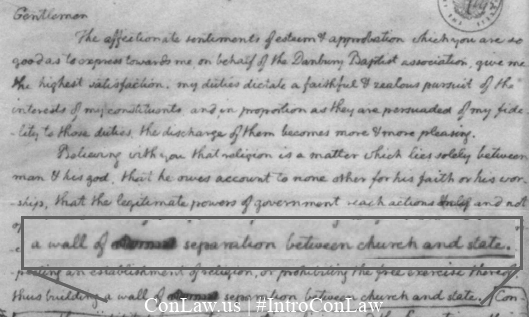 Gentlemen
The affectionate sentiments of esteem & approbation which you are so
good as to express towards me on behalf of the Danbury Baptist association, give me
the highest satisfaction. my duties dictate a faithful & zealous pursuit of the
interests of my constituents, and in proportion as they are persuaded of my fide
-lity to those duties, the discharge of them becomes more & more pleasing.
Believing with you that religion is a matter which lies solely between
man & his god, that he owes account to none other for his faith or his wor
-ship, that the legitimate powers of government reach actions only and not
a wall of separation between church and state.
an establishment of religion, or prohibiting the free exercise thereof
thus building a wall of separation between church and state. Con
ConLaw.us | #IntroConLaw